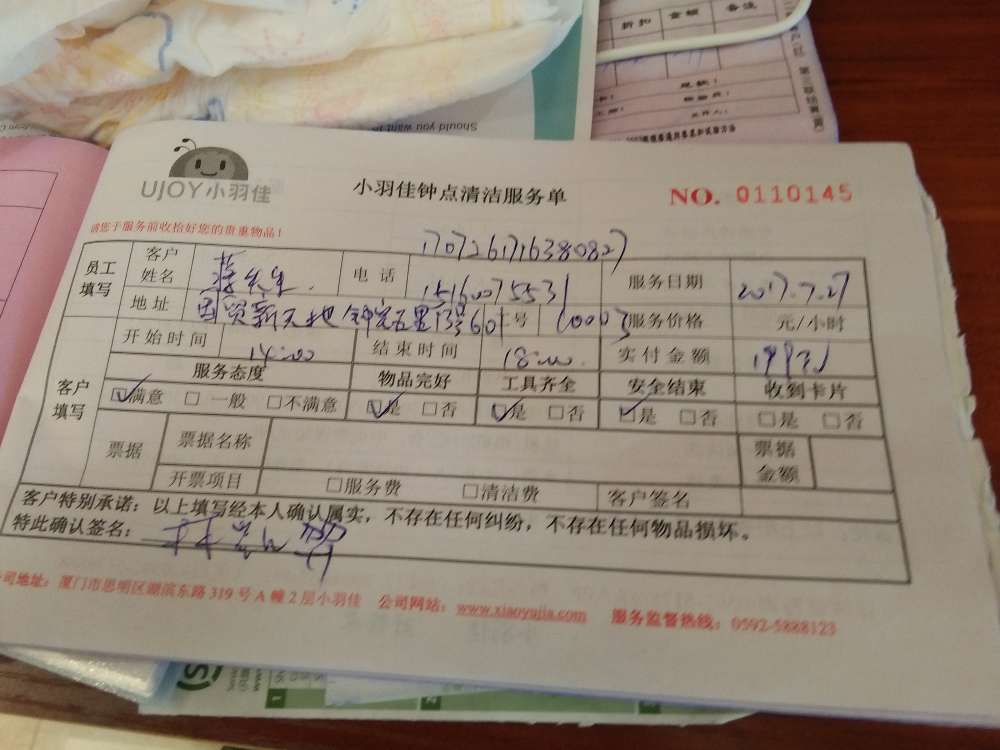 折扣 金额 备注
Should you want to
UJOY小羽佳
小羽佳钟点清洁服务单
NO. 0110145
请您于服务前收拾好您的贵重物品!
1707261716380827
员工填写 客户姓名 蒋先生 电话 15160075531 服务日期 2017.7.27
地址 国贸新天地 钟宅五里 号 服务价格 元/小时
开始时间 14:00 结束时间 18:00 实付金额
客户填写 服务态度 物品完好 工具齐全 安全结束 收到卡片
☑满意 □一般 □不满意 ☑是 □否 ☑是 □否 ☑是 □否 □是 □否
票据 票据名称 票据金额
开票项目 □服务费 □清洁费 客户签名
客户特别承诺：以上填写经本人确认属实，不存在任何纠纷，不存在任何物品损坏。
特此确认签名：
公司地址：厦门市思明区湖滨东路319号A幢2层小羽佳 公司网站：www.xiaoyujia.com 服务监督热线：0592-5888123